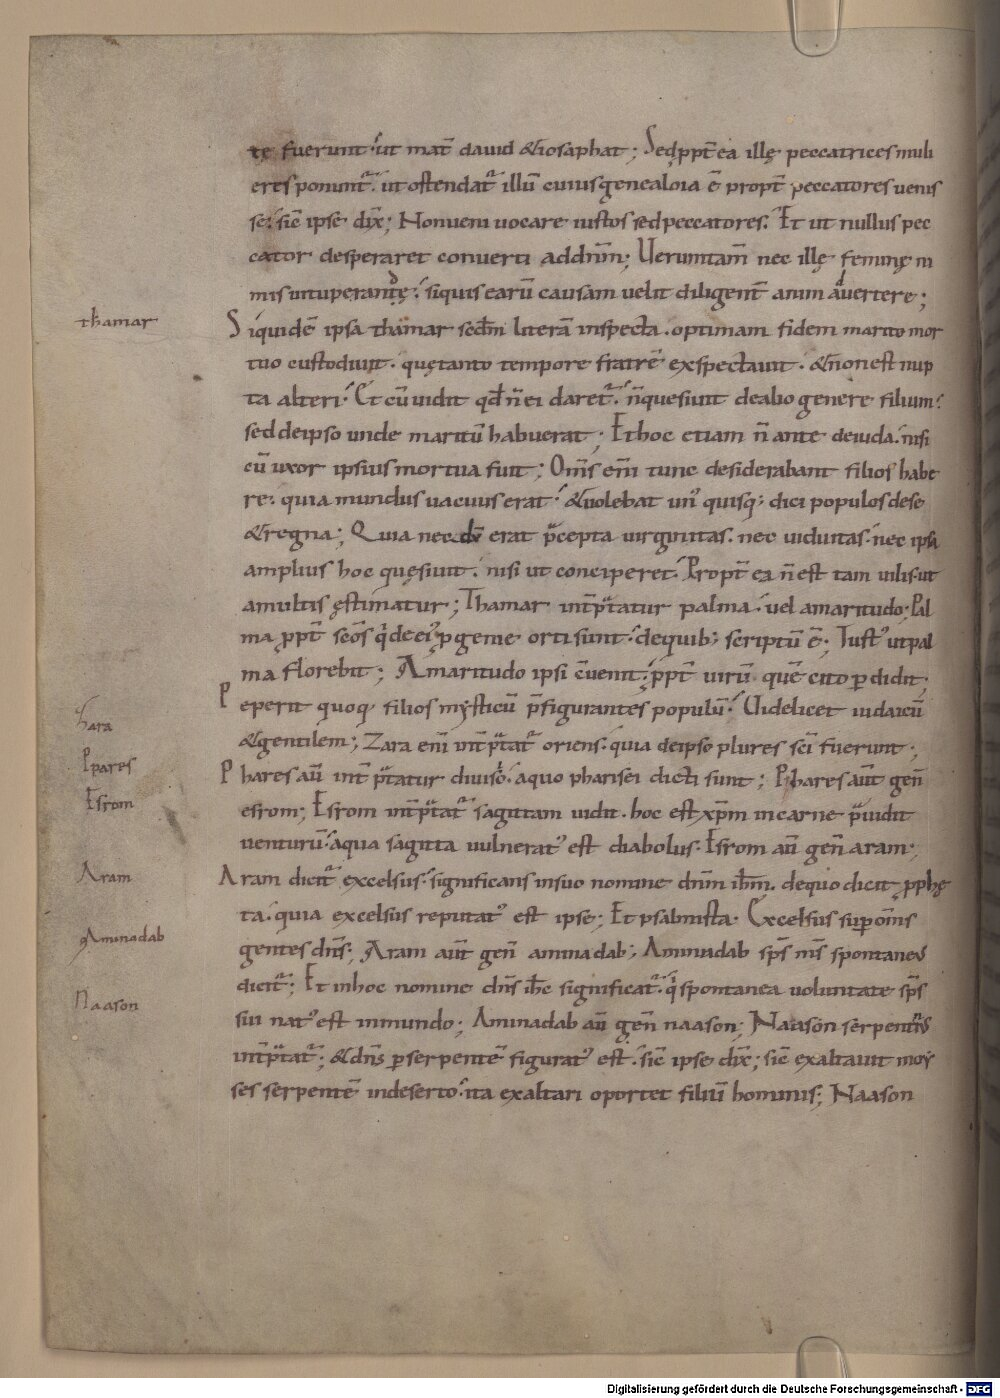 tę fuerunt. ut mat̄ dauid &iosaphat; Sed ꝓpt̄ ea illę peccatrices muli
eres ponunt᷑. ut ostendat᷑ illū cuius genealoia ē propt̄ peccatores uenis
se. sic̄ ipse dix̄; Non ueni uocare iustos sed peccatores. Et ut nullus pec
cator desperaret conuerti ad dn̄m; Uerumtam̄ nec illę feminę ni
mis uituperandę. siquis earū causam uelit diligent̄ animaduertere;
thamar
Siquidē ipsa thamar secdm̄ literā inspecta. optimam fidem marito mor
tuo custodiuit. quę tanto tempore fratrē exspectauit. & non est nup
ta alteri. Et cū uidit qd̄ n̄ ei daret᷑. n̄ quesiuit de alio genere filium.
sed de ipso unde maritū habuerat; Et hoc etiam n̄ ante de iuda. nisi
cū uxor ipsius mortua fuit; Om̄s eni̅ tunc desiderabant filios habe
re. quia mundus uacuus erat. & uolebat un᷒ quisq; dici populos de se
& regna; Quia nec dū erat p̄cepta uirginitas. nec uiduitas. nec ipsa
amplius hoc quęsiuit. nisi ut conciperet. Propt̄ ea n̄ est tam uilis ut
a multis ęstimatur; Thamar int̄p̄tatur palma. uel amaritudo; Pal
ma ꝓpt̄ sc̄os qi de ei᷒ ꝓgenie orti sunt. de quib; scriptū ē; Iust᷒ ut pal
ma florebit; Amaritudo ipsi ēuenit. ꝓpt̄ uirū quē cito ꝑdidit.
Peperit quoq; filios mysticū p̄figurantes populū. Uidelicet iudaicū
Zara
& gentilem; Zara eni̅ int̄p̄tat᷑ oriens. quia de ipso plures sc̄i fuerunt;
Phares
Phares aū int̄p̄tatur diuisio. a quo pharisei dicti sunt; Phares aut̄ gen̄
Esrom
esrom; Esrom int̄p̄tat᷑ sagittam uidit. hoc est xp̄m in carne p̄uidit
uenturū. a qua sagitta uulnerat᷒ est diabolus. Esrom aū gen̄ aram;
Aram
Aram dicit᷑ excelsus. significans in suo nomine dn̄m ih̄m. de quo dicit ꝓphę
ta. quia excelsus reputat᷒ est ipse; Et psalmista. Excelsus suꝑ om̄s
Aminadab
gentes dn̄s; Aram aut̄ gen̄ aminadab; Aminadab sp̄s m̄s spontaneus
dicit᷑; Et in hoc nomine dn̄s ih̄c significat᷑. qi spontanea uoluntate sp̄s
Naason
sui nat᷒ est in mundo; Aminadab aū gen̄ naason; Naason serpentin᷒
int̄p̄tat᷑; & dn̄s ꝑ serpentē figurat᷒ est. sic̄ ipse dix̄; sic̄ exaltauit moy
ses serpentē in deserto. ita exaltari oportet filiū hominis; Naason
Digitalisierung gefördert durch die Deutsche Forschungsgemeinschaft - DFG